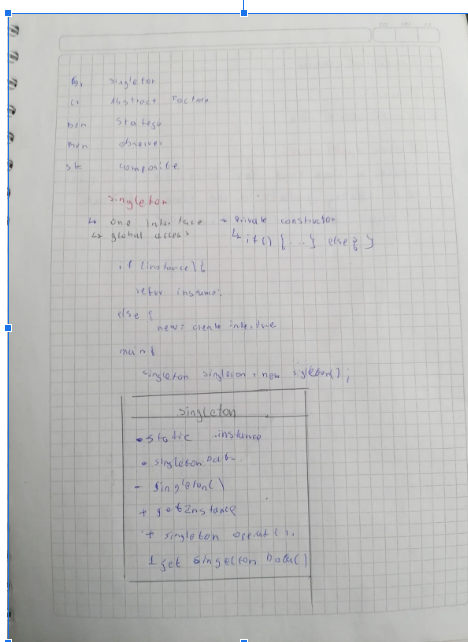 singleton
Abstract Factory
observer
composite
singleton
↳ one interface → private constructor
↳ global access ↳ if() {...} else { }
if (instance) {
return instance;
else {
new: create
main {
singleton singleton = new sigleton();
singleton
• static instance
• singleton Data
- singleton()
+ getInstance
+ singleton operat();
get singleton Data()